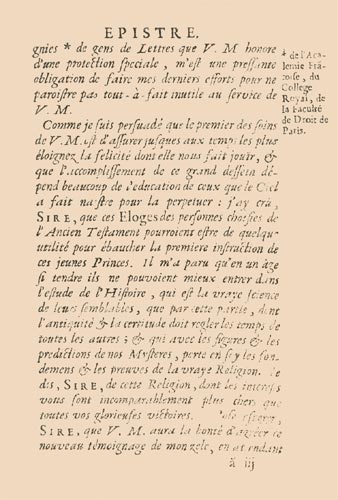 EPISTRE.
gnies * de gens de Lettres que V. M honore
d'une protection speciale, m'est une pressante
obligation de faire mes derniers efforts pour ne
paroistre pas tout-à-fait inutile au service de
V. M.
* de l'Aca-
demie Frã-
coise, du
College
Royal, de
la Faculté
de Droit de
Paris.
Comme je suis persuadé que le premier des soins
de V. M. est d'assurer jusques aux temps les plus
éloignez la felicité dont elle nous fait jouir, &
que l'accomplissement de ce grand dessein dé-
pend beaucoup de l'education de ceux que le Ciel
a fait naistre pour la perpetuer : j'ay crû,
SIRE, que ces Eloges des personnes choisies de
l'Ancien Testament pourroient estre de quelque
utilité pour ébaucher la premiere instruction de
ces jeunes Princes. Il m'a paru qu'en un âge
si tendre ils ne pouvoient mieux entrer dans
l'estude de l'Histoire, qui est la vraye science
de leurs semblables, que par cette partie, dont
l'antiquité & la certitude doit regler les temps de
toutes les autres ; & qui avec les figures & les
predictions de nos Mysteres, porte en soy les fon-
demens & les preuves de la vraye Religion. Je
dis, SIRE, de cette Religion, dont les interests
vous sont incomparablement plus chers que
toutes vos glorieuses victoires. J'ose esperer,
SIRE, que V. M. aura la bonté d'agréer ce
nouveau témoignage de mon zele, en attendant
ã iij